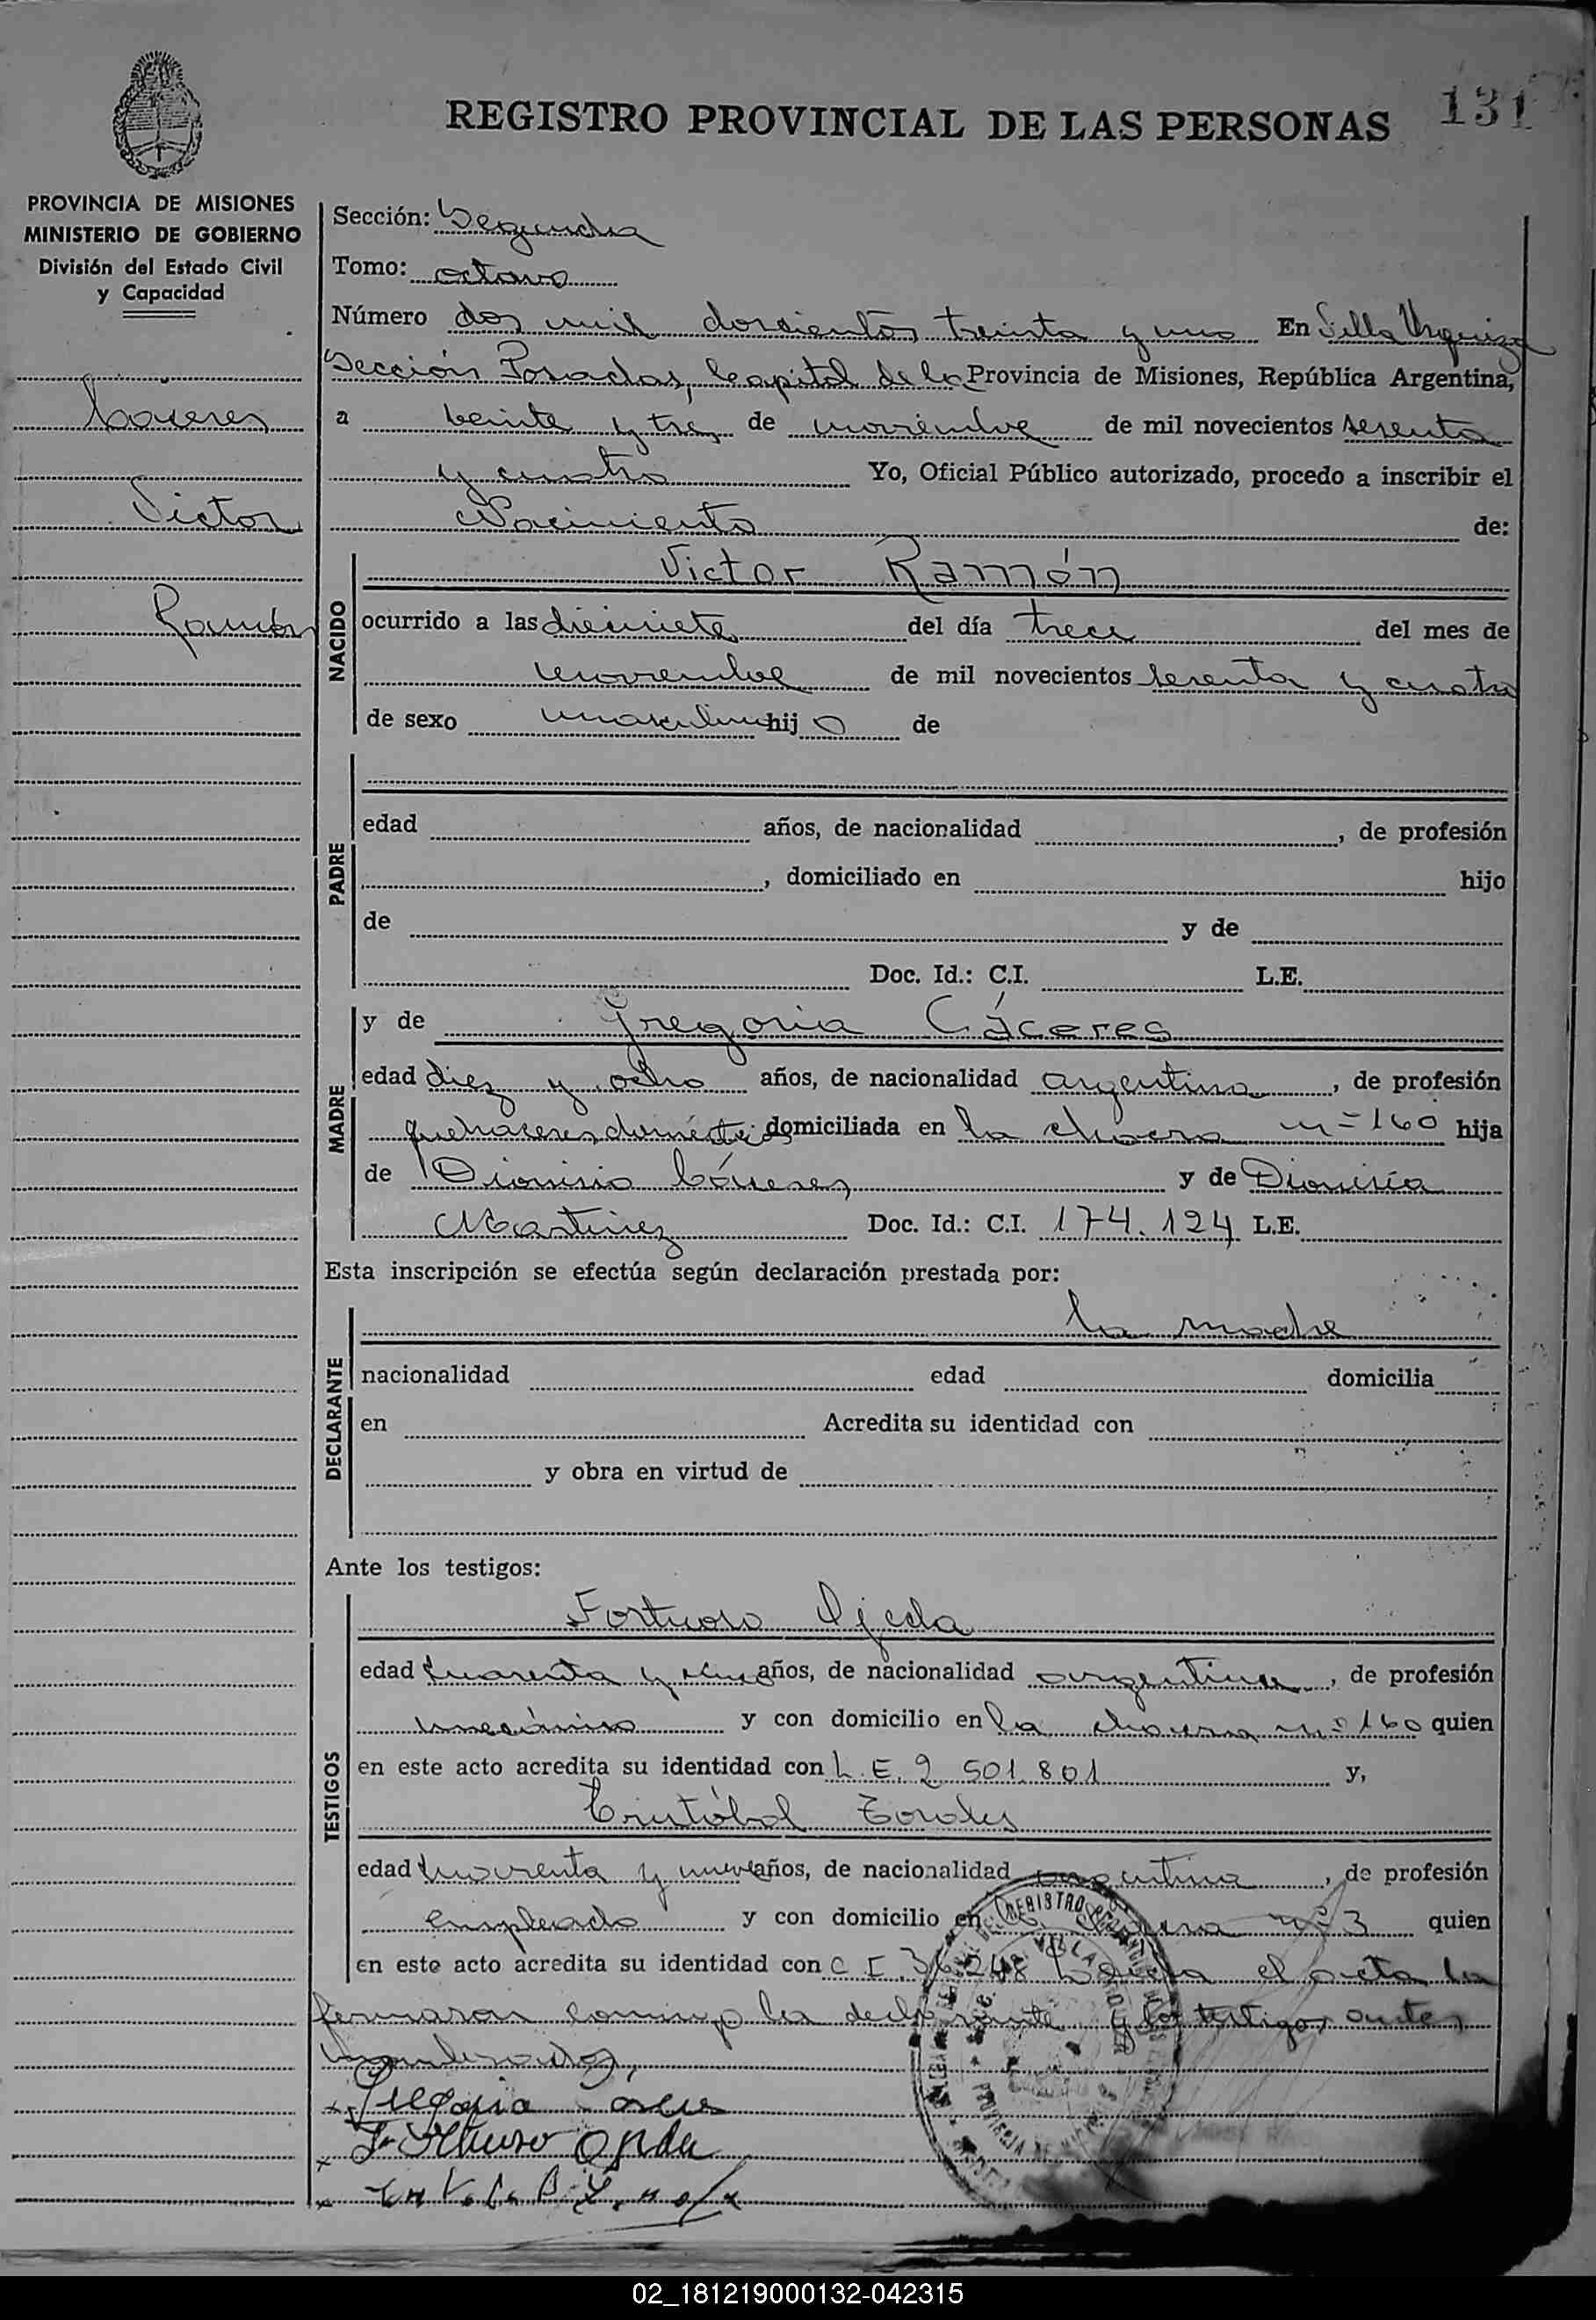 REGISTRO PROVINCIAL DE LAS PERSONAS
131
PROVINCIA DE MISIONES
MINISTERIO DE GOBIERNO
División del Estado Civil
y Capacidad
Cáceres
Victor
Ramón
Sección: Segunda
Tomo: octavo
Número dos mil doscientos treinta y uno En Villa Urquiza
Sección Posadas, Capital de la Provincia de Misiones, República Argentina,
a veinte y tres de noviembre de mil novecientos sesenta
y cuatro Yo, Oficial Público autorizado, procedo a inscribir el
Nacimiento de:
NACIDO
Victor Ramón
ocurrido a las diecisiete del día trece del mes de
noviembre de mil novecientos sesenta y cuatro
de sexo masculino hijo de
PADRE
edad años, de nacionalidad , de profesión
, domiciliado en hijo
de y de
Doc. Id.: C.I. L.E.
MADRE
y de Gregoria Cáceres
edad diez y ocho años, de nacionalidad argentina, de profesión
quehaceres domésticos domiciliada en la chacra nº 160 hija
de Dionisio Cáceres y de Dionisia
Martinez Doc. Id.: C.I. 174.124 L.E.
Esta inscripción se efectúa según declaración prestada por:
DECLARANTE
la madre
nacionalidad edad domicilia
en Acredita su identidad con
y obra en virtud de
Ante los testigos:
TESTIGOS
Fortuoso Ojeda
edad cuarenta y cinco años, de nacionalidad argentina, de profesión
mecánico y con domicilio en la chacra nº 160 quien
en este acto acredita su identidad con L.E. 2 501.801 y,
Cristóbal
edad cuarenta y nueve años, de nacionalidad argentina, de profesión
empleado y con domicilio en chacra nº 3 quien
en este acto acredita su identidad con C.I. 36.248 Leída el acta la
firmaron conmigo la declarante y los testigos antes
mencionados,
Gregoria
Ojeda
02_181219000132-042315